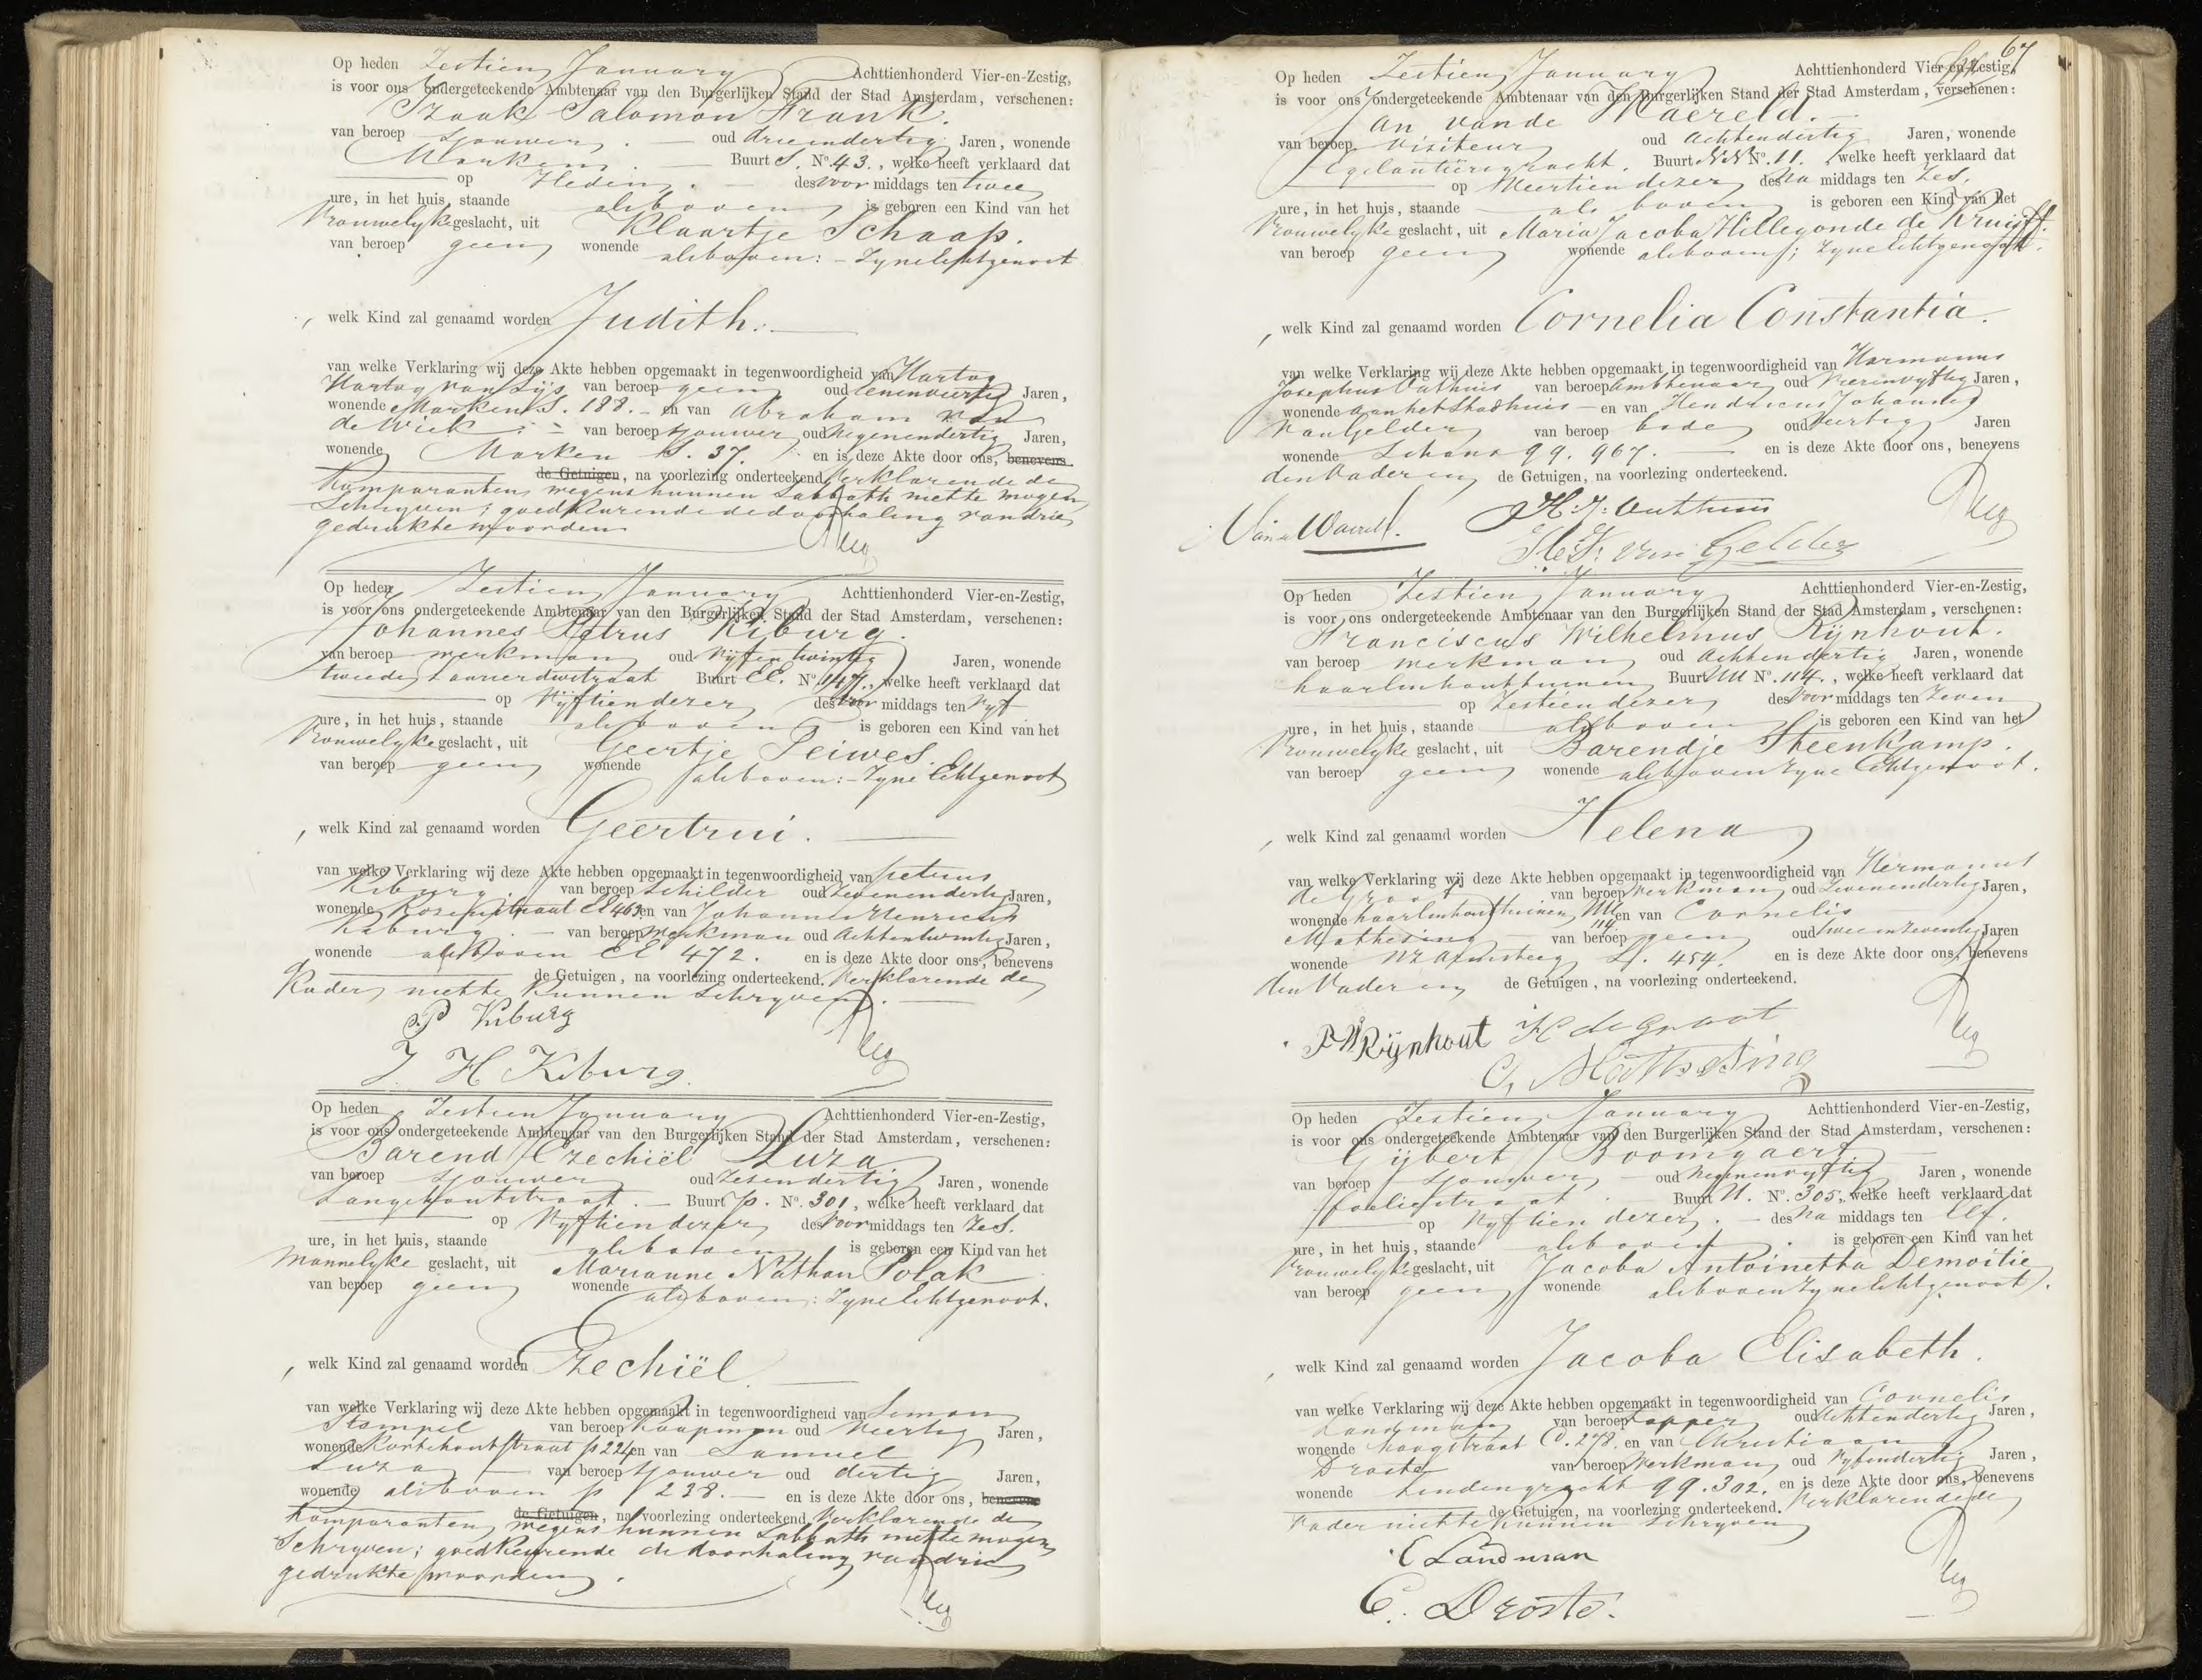 Op heden Zestien January Achttienhonderd Vier-en-Zestig,
is voor ons ondergeteekende Ambtenaar van den Burgerlijken Stand der Stad Amsterdam, verschenen:
Izaak Salomon Frank.
van beroep sjouwer. oud drieendertig Jaren, wonende
Marken. Buurt S. No. 43., welke heeft verklaard dat
op Heden. des voor middags ten twee
ure, in het huis, staande alsboven is geboren een Kind van het
Vrouwelyke geslacht, uit Klaartje Schaap.
van beroep geen wonende alsboven: - Zyne Echtgenoot
, welk Kind zal genaamd worden Judith.
van welke Verklaring wij deze Akte hebben opgemaakt in tegenwoordigheid van Hartog
Hartog van Lijs van beroep geen oud eenenveertig Jaren,
wonende Marken S. 188. - en van Abraham van
de Wiek van beroep sjouwer oud Negenendertig Jaren,
wonende Marken S. 37. en is deze Akte door ons, benevens
de Getuigen, na voorlezing onderteekend. Verklarende de
Komparanten wegens hunnen Sabbath niet te mogen
Schryven; goedkeurende de doorhaling van drie
gedrukte woorden
Op heden Zestien January Achttienhonderd Vier-en-Zestig,
is voor ons ondergeteekende Ambtenaar van den Burgerlijken Stand der Stad Amsterdam, verschenen:
Johannes Petrus Kiburg.
van beroep werkman oud Vyfentwintig Jaren, wonende
tweede Laurierdwstraat Buurt EE. No. 147., welke heeft verklaard dat
op Vyftien dezer des Voor middags ten Vyf
ure, in het huis, staande alsboven is geboren een Kind van het
Vrouwelyke geslacht, uit Geertje Teiwes.
van beroep geen wonende alsboven: - Zyne Echtgenoot
, welk Kind zal genaamd worden Geertrui.
van welke Verklaring wij deze Akte hebben opgemaakt in tegenwoordigheid van Petrus
Kiburg. van beroep Schilder oud Zevenendertig Jaren,
wonende Rozenstraat EE 463 en van Johannes Henricus
Kiburg. - van beroep Werkman oud Achtentwintig Jaren,
wonende alsboven EE 472. en is deze Akte door ons, benevens
de Getuigen, na voorlezing onderteekend. Verklarende de
Vader niet te kunnen Schryven.
P Kiburg
J. H Kiburg.
Op heden Zestien January Achttienhonderd Vier-en-Zestig,
is voor ons ondergeteekende Ambtenaar van den Burgerlijken Stand der Stad Amsterdam, verschenen:
Barend Ezechiël Luza
van beroep sjouwer oud Zesendertig Jaren, wonende
Langehoutstraat. - Buurt P. No. 301, welke heeft verklaard dat
op Vyftien dezer des Voor middags ten Zes.
ure, in het huis, staande alsboven is geboren een Kind van het
Mannelyke geslacht, uit Marianne Nathan Polak
van beroep geen wonende alsboven: Zyne Echtgenoot.
, welk Kind zal genaamd worden Ezechiël
van welke Verklaring wij deze Akte hebben opgemaakt in tegenwoordigheid van Simon
Stempel van beroep Koopman oud Veertig Jaren,
wonende Kortehoutstraat P 224 en van Samuel
Luza - van beroep sjouwer oud dertig Jaren,
wonende alsboven P 238. - en is deze Akte door ons, benevens
de Getuigen, na voorlezing onderteekend. Verklarende de
Komparanten wegens hunnen Sabbath niet te mogen
Schryven; goedkeurende de doorhaling van drie
gedrukte woorden.
67
Op heden Zestien January Achttienhonderd Vier-en-Zestig,
is voor ons ondergeteekende Ambtenaar van den Burgerlijken Stand der Stad Amsterdam, verschenen:
Jan van de Waereld.
van beroep Visiteur oud Achtendertig Jaren, wonende
Egelantiersgracht. Buurt NN No. 11. welke heeft verklaard dat
op Veertien dezer des Na middags ten Zes.
ure, in het huis, staande als boven is geboren een Kind van het
Vrouwelyke geslacht, uit Maria Jacoba Hillegonde de Kruijff.
van beroep geen wonende alsboven; Zyne Echtgenoot.
, welk Kind zal genaamd worden Cornelia Constantia.
van welke Verklaring wij deze Akte hebben opgemaakt in tegenwoordigheid van Hermanus
Josephus Outhuis van beroep Ambtenaar oud Vierenvyftig Jaren,
wonende aan het Stadhuis - en van Hendricus Johannes
van Gelder van beroep bode oud Veertig Jaren
wonende Schans QQ. 967. en is deze Akte door ons, benevens
den Vader en de Getuigen, na voorlezing onderteekend.
H. J: Outhuis
H: J: van Gelder
Op heden Zestien January Achttienhonderd Vier-en-Zestig,
is voor ons ondergeteekende Ambtenaar van den Burgerlijken Stand der Stad Amsterdam, verschenen:
Franciscus Wilhelmus Rijnhout.
van beroep werkman oud Achtendertig Jaren, wonende
haarlmhouttuinen Buurt MM No. 114., welke heeft verklaard dat
op Zestien dezer des Voor middags ten Zeven
ure, in het huis, staande alsboven is geboren een Kind van het
Vrouwelyke geslacht, uit Barendje Steenkamp.
van beroep geen wonende alsboven Zyne Echtgenoot.
, welk Kind zal genaamd worden Helena
van welke Verklaring wij deze Akte hebben opgemaakt in tegenwoordigheid van Hermanus
de Groot van beroep Werkman oud Zevenendertig Jaren,
wonende haarlmhouttuinen MM 114 en van Cornelis
Mathesing van beroep geen oud tweeenzeventig Jaren
wonende steeg 454. en is deze Akte door ons, benevens
den Vader en de Getuigen, na voorlezing onderteekend.
F W Rijnhout H de groot
C, Mathesing
Op heden Zestien January Achttienhonderd Vier-en-Zestig,
is voor ons ondergeteekende Ambtenaar van den Burgerlijken Stand der Stad Amsterdam, verschenen:
Gijbert Boomgaert
van beroep Sjouwer oud Negenenvyftig Jaren, wonende
foeliestraat. Buurt U. No. 305, welke heeft verklaard dat
op Vyftien dezer. - des Na middags ten Elf.
ure, in het huis, staande alsboven is geboren een Kind van het
Vrouwelyke geslacht, uit Jacoba Antoinetta Demoitie
van beroep geen wonende alsboven Zyne Echtgenoot.
, welk Kind zal genaamd worden Jacoba Elisabeth.
van welke Verklaring wij deze Akte hebben opgemaakt in tegenwoordigheid van Cornelis
Landman van beroep tapper oud Achtendertig Jaren,
wonende hoogstraat 278. en van Christiaan
Droste van beroep Werkman oud Vyfendertig Jaren,
wonende Lindengracht QQ. 302. en is deze Akte door ons, benevens
de Getuigen, na voorlezing onderteekend. Verklarende de
Vader niet te kunnen Schryven
C Landman
C. Droste.